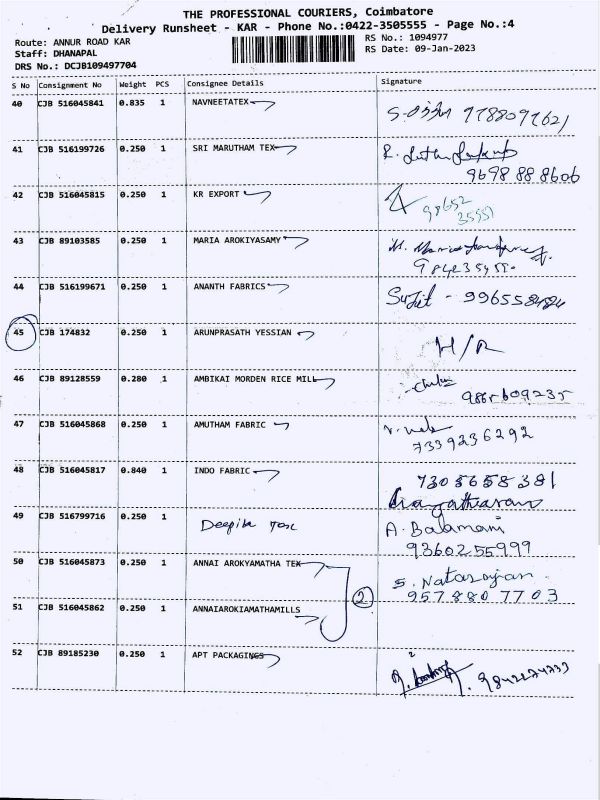 THE PROFESSIONAL COURIERS, Coimbatore
Delivery Runsheet - KAR - Phone No.:0422-3505555 - Page No.:4
Route: ANNUR ROAD KAR
RS No.: 1094977
Staff: DHANAPAL
RS Date: 09-Jan-2023
DRS No.: DCJB109497704
S No Consignment No Weight PCS Consignee Details Signature
40 CJB 516045841 0.835 1 NAVNEETATEX
41 CJB 516199726 0.250 1 SRI MARUTHAM TEX
9698 88 8606
42 CJB 516045815 0.250 1 KR EXPORT
98652
43 CJB 89103585 0.250 1 MARIA AROKIYASAMY
44 CJB 516199671 0.250 1 ANANTH FABRICS Sujit -
45 CJB 174832 0.250 1 ARUNPRASATH YESSIAN H/R
46 CJB 89128559 0.280 1 AMBIKAI MORDEN RICE MILL
9865609235
47 CJB 516045868 0.250 1 AMUTHAM FABRIC
7339236292
48 CJB 516045817 0.840 1 INDO FABRIC 7305658381
49 CJB 516799716 0.250 1 Deepika Tex A. Balamani
9360255999
50 CJB 516045873 0.250 1 ANNAI AROKYAMATHA TEX S. Natarajan
2 9578807703
51 CJB 516045862 0.250 1 ANNAIAROKIAMATHAMILLS
52 CJB 89185230 0.250 1 APT PACKAGINGS